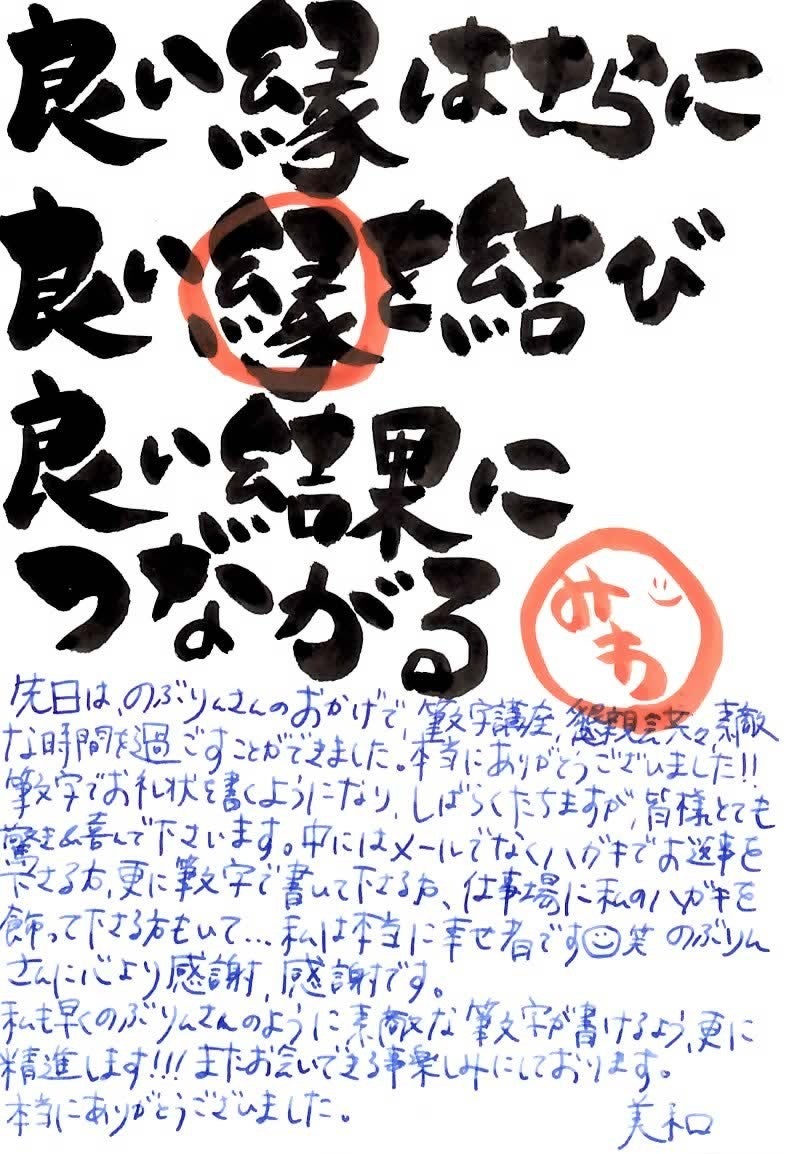 良い縁はさらに
良い縁を結び
良い結果に
つながる
みわ
先日は、のぶりんさんのおかげで、筆文字講座、懇親会共々、素敵
な時間を過ごすことができました。本当にありがとうございました!!
筆文字でお礼状を書くようになり、しばらくたちますが、皆様とても
驚き&喜んで下さいます。中にはメールでなくハガキでお返事を
下さる方、更に筆文字で書いて下さる方、仕事場に私のハガキを
飾って下さる方もいて…私は本当に幸せ者です☺笑 のぶりん
さんに心より感謝、感謝です。
私も早くのぶりんさんのように素敵な筆文字が書けるよう、更に
精進します!!!またお会いできる事楽しみにしております。
本当にありがとうございました。
美和